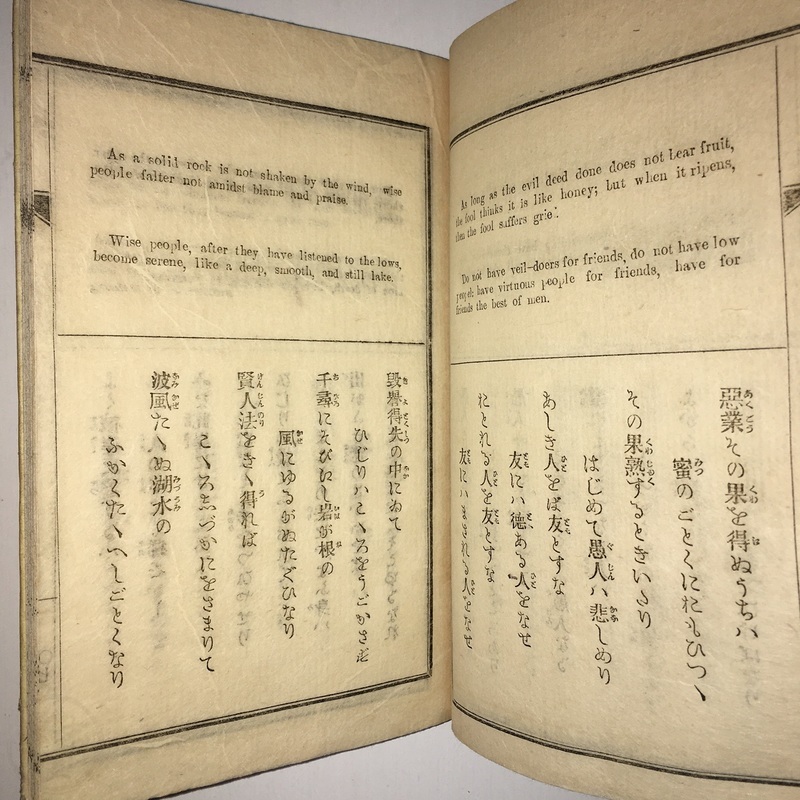 As long as the evil deed done does not bear fruit,
the fool thinks it is like honey; but when it ripens,
then the fool suffers grief.
Do not have veil-doers for friends, do not have low
people: have virtuous people for friends, have for
friends the best of men.
惡業その果を得ぬうちハ
蜜のごとくにおもひつゝ
その果熟するときいたり
はじめて愚人ハ悲しめり
あしき人をば友とすな
友にハ徳ある人をなせ
おとれる人を友とすな
友にハまされる人をなせ
As a solid rock is not shaken by the wind, wise
people falter not amidst blame and praise.
Wise people, after they have listened to the lows,
become serene, like a deep, smooth, and still lake.
毀譽得失の中にゐて
ひじりハこゝろをうごかさず
千尋にそびえし岩が根の
風にゆるがぬたぐひなり
賢人法をきゝ得れば
こゝろしづかにをさまりて
波風たゝぬ湖水の
ふかくたゝへしごとくなり